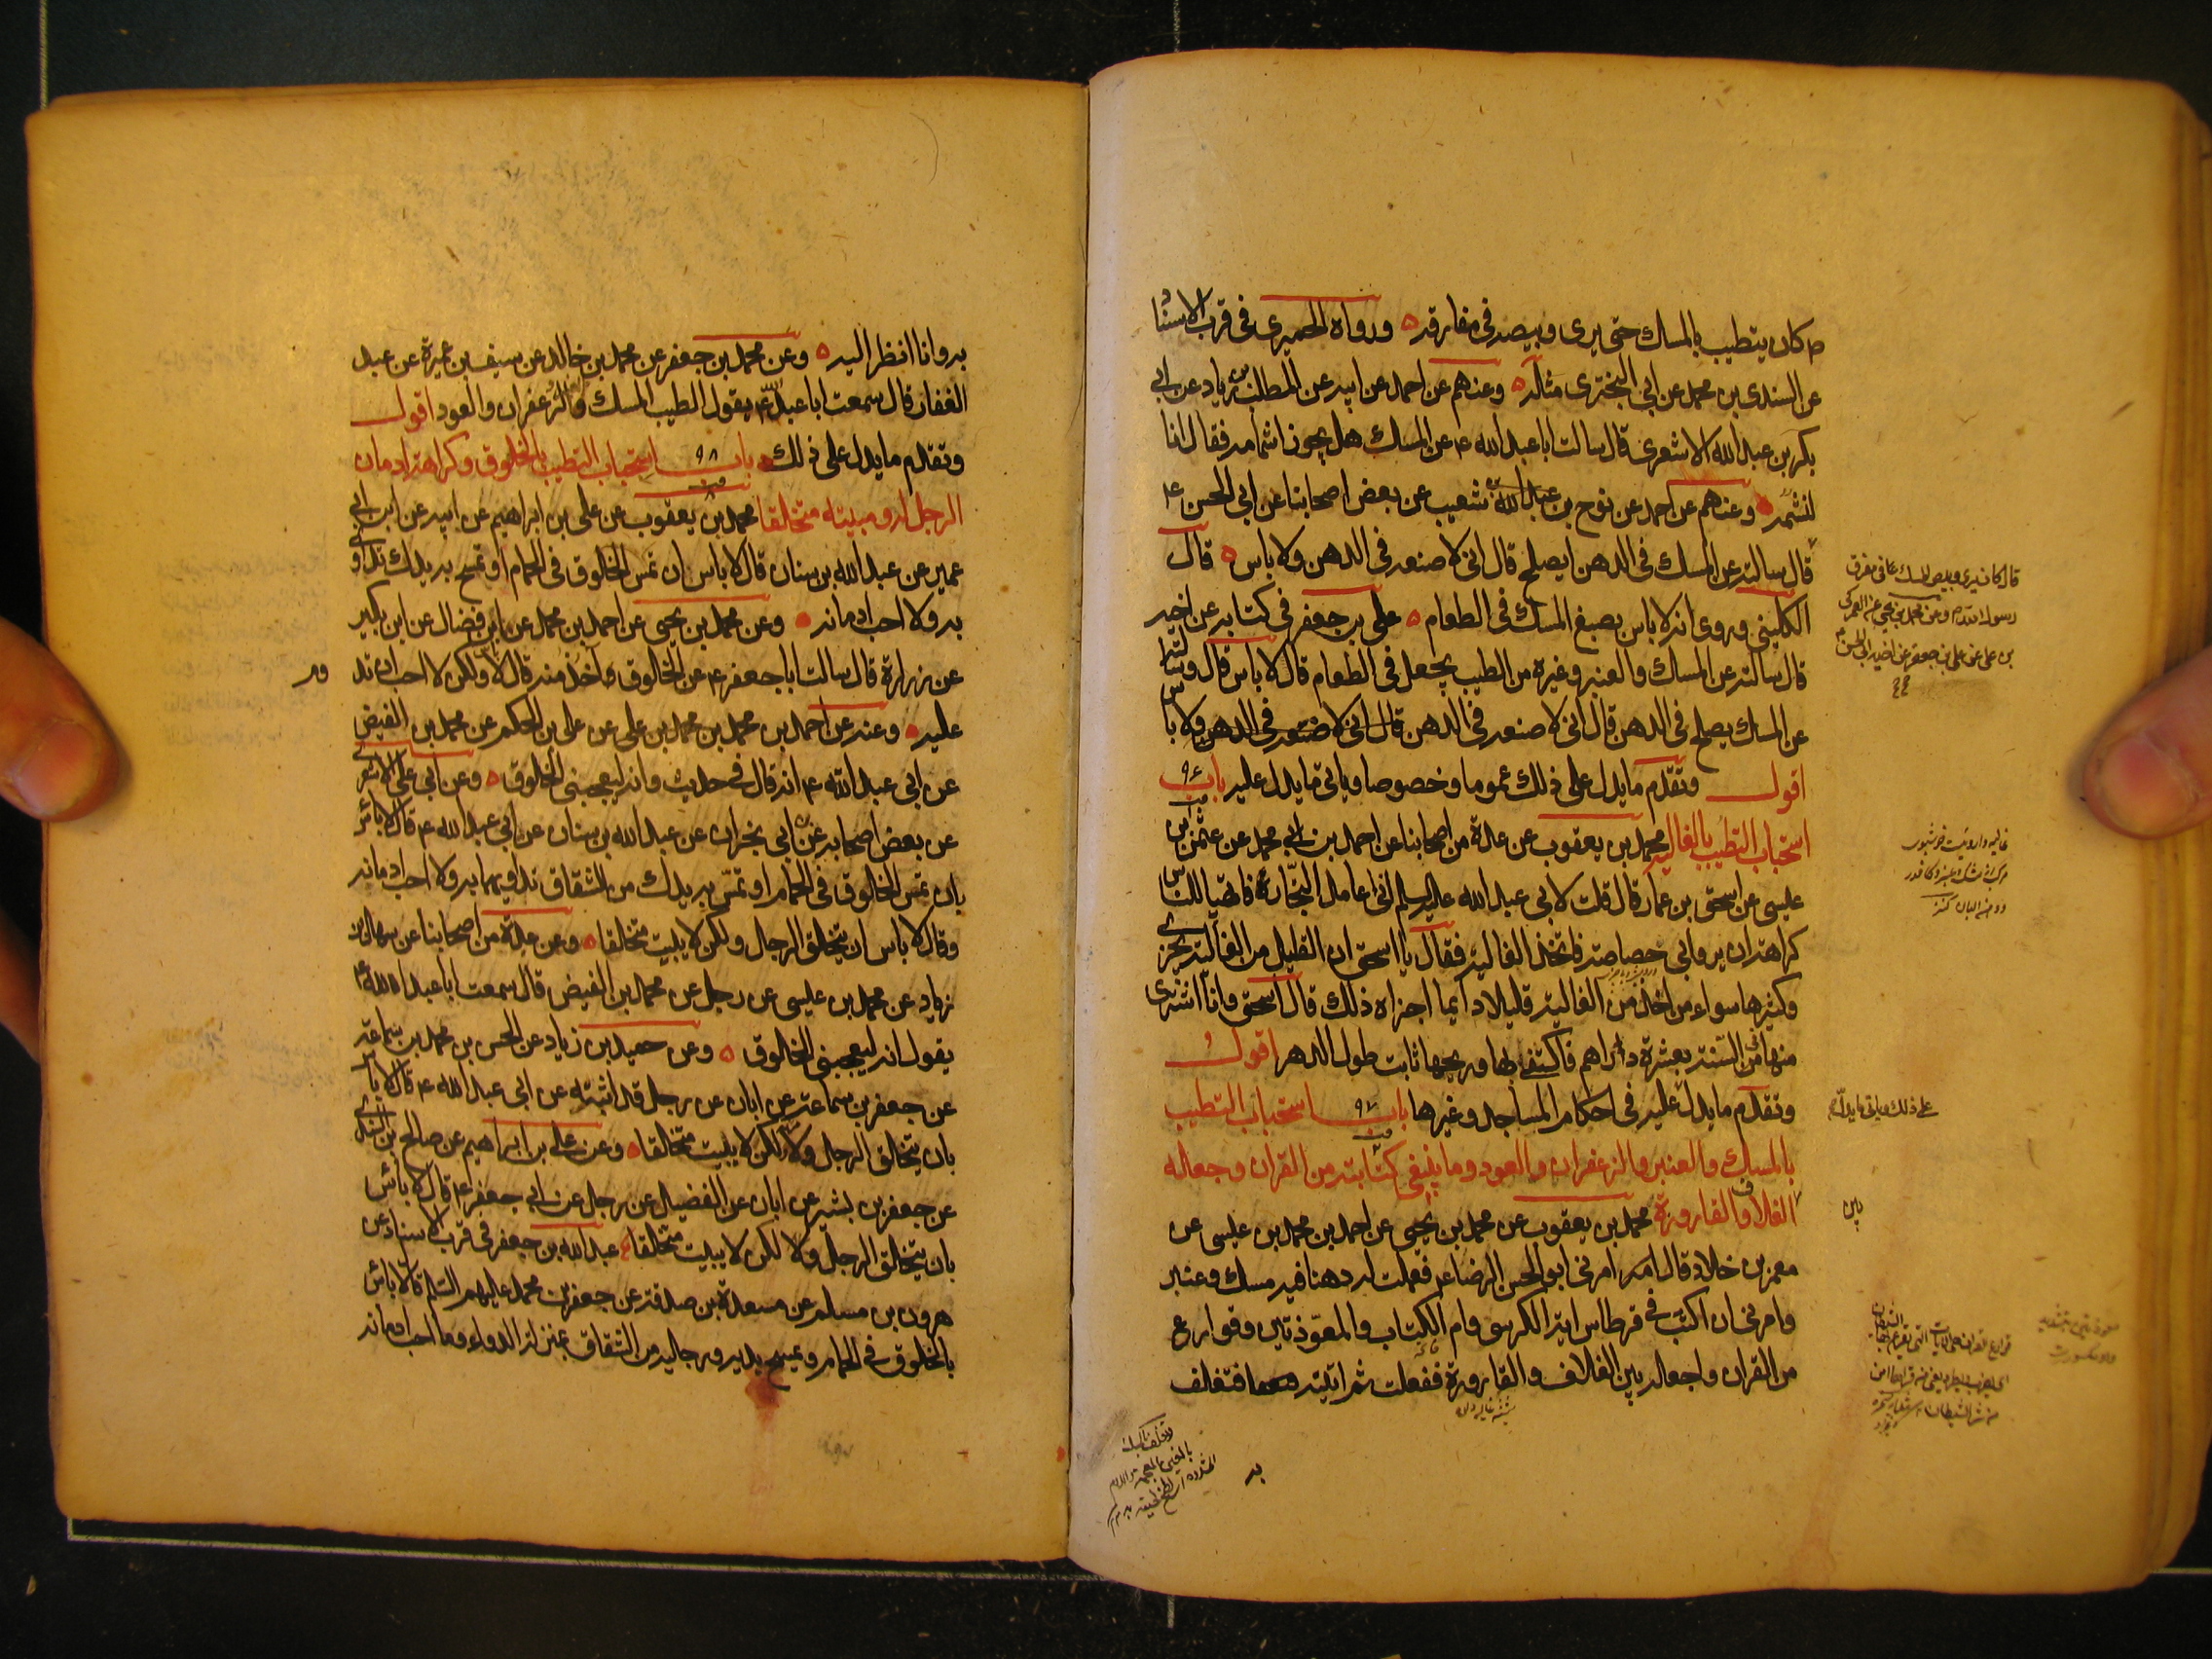 ص كان يتطيب بالمسك حتى يرى وبيصه فى مفارقه ورواه الحميرى فى قرب الاسناد
عن السندى بن محمد عن ابى البخترى مثله وعنهم عن احمد عن ابيه عن المطلب بن زياد عن ابى
بكر بن عبد الله الاشعرى قال سالت ابا عبد الله ع عن المسك هل يجوز اشمامه فقال انا
لنشمه وعنهم عن احمد عن نوح بن شعيب عن بعض اصحابنا عن ابى الحسن ع
قال سالته عن المسك فى الدهن ايصلح قال انى لا صنعه فى الدهن ولا باس قال
الكلينى وروى انه لا باس بصنع المسك فى الطعام على بن جعفر فى كتابه عن اخيه
قال سالته عن المسك والعنبر وغيره من الطيب يجعل فى الطعام قال لا باس قال وسالته
عن المسك يصلح فى الدهن قال انى لا صنعه فى الدهن قال انى لا صنعه فى الدهن ولا باس
اقول وتقدم ما يدل على ذلك عموما وخصوصا وياتى ما يدل عليه باب ٩٦
استحباب التطيب بالغاليه محمد بن يعقوب عن عدة من اصحابنا عن احمد بن ابى محمد عن عثمن بن
عيسى عن اسحق بن عمار قال قلت لابى عبد الله عليه السلم انى اعامل التجارة فاتهيا للناس
كراهة ان يروا بى خصاصة فاتخذ الغالية فقال يا اسحق ان القليل من الغالية يجزى
وكثيرها سواء من اخذ من الغالية قليلا دايما اجزاه ذلك قال اسحق وانا اشترى
منها فى السنة بعشرة دراهم فاكتفى بها وريحها ثابت طول الدهر اقول
وتقدم ما يدل عليه فى احكام المساجد وغيرها باب ٩٧ استحباب التطيب
بالمسك والعنبر والزعفران والعود وما ينبغى كتابته من القران وجعله
الغلاف والقارورة محمد بن يعقوب عن محمد بن يحيى عن احمد بن محمد بن عيسى عن
معمر بن خلاد قال امرنى ابو الحسن الرضا ع فعملت له دهنا فيه مسك وعنبر
وامرنى ان اكتب فى قرطاس اية الكرسى وام الكتاب والمعوذتين وقوارع
من القران واجعله بين الغلاف والقارورة ففعلت ثم اتيته فتغلف
به
على ذلك وياتى ما يدل
بين
به وانا انظر اليه وعن محمد بن جعفر عن محمد بن خالد عن سيف بن عميرة عن عبد
الغفار قال سمعت ابا عبد الله ع يقول الطيب المسك والعنبر والزعفران والعود اقول
وتقدم ما يدل على ذلك باب ٩٨ استحباب التطيب بالخلوق وكراهة ادمان
الرجل له ومبيته متخلقا محمد بن يعقوب عن على بن ابراهيم عن ابيه عن ابن ابى
عمير عن عبد الله بن سنان قال لا باس ان تمس الخلوق فى الحمام او تمسح به يدك تداوى
به ولا احب ادمانه وعن محمد بن يحيى عن احمد بن محمد عن ابن فضال عن ابن بكير
عن زرارة قال سالت ابا جعفر ع عن الخلوق آخذ منه قال لا ولكن لا احب ان تدوم
عليه وعنه عن احمد بن محمد بن محمد بن على عن على بن الحكم عن محمد بن الفيض
عن ابى عبد الله ع انه قال فى حديث وانه ليعجبنى الخلوق وعن ابى على الاشعرى
عن بعض اصحابه عن ابن ابى نجران عن عبد الله بن سنان عن ابى عبد الله ع قال لا باس
بان تمس الخلوق فى الحمام او تمس به يدك من الشقاق تداويهما به ولا احب ادمانه
وقال لا باس ان يتخلق الرجل ولكن لا يبيت متخلقا وعن عدة من اصحابنا عن سهل بن
زياد عن محمد بن عيسى عن رجل عن محمد بن الفيض قال سمعت ابا عبد الله ع
يقول انه ليعجبنى الخلوق وعن حميد بن زياد عن الحسن بن محمد بن سماعة
عن جعفر بن سماعة عن ابان عن رجل قد اثبته عن ابى عبد الله ع قال لا باس
بان يتخلق الرجل ولكن لا يبيت متخلقا وعن على بن ابراهيم عن صالح بن السندى
عن جعفر بن بشير عن ابان عن الفضيل عن رجل عن ابى جعفر ع قال لا باس
بان يتخلق الرجل ولا لكن لا يبيت متخلقا عبد الله بن جعفر فى قرب الاسناد عن
هرون بن مسلم عن مسعدة بن صدقة عن جعفر بن محمد عليهم السلم قال لا باس
بالخلوق فى الحمام ويمسح يديه ورجليه من الشقاق بمنزلة الدواء وما احب ادمانه